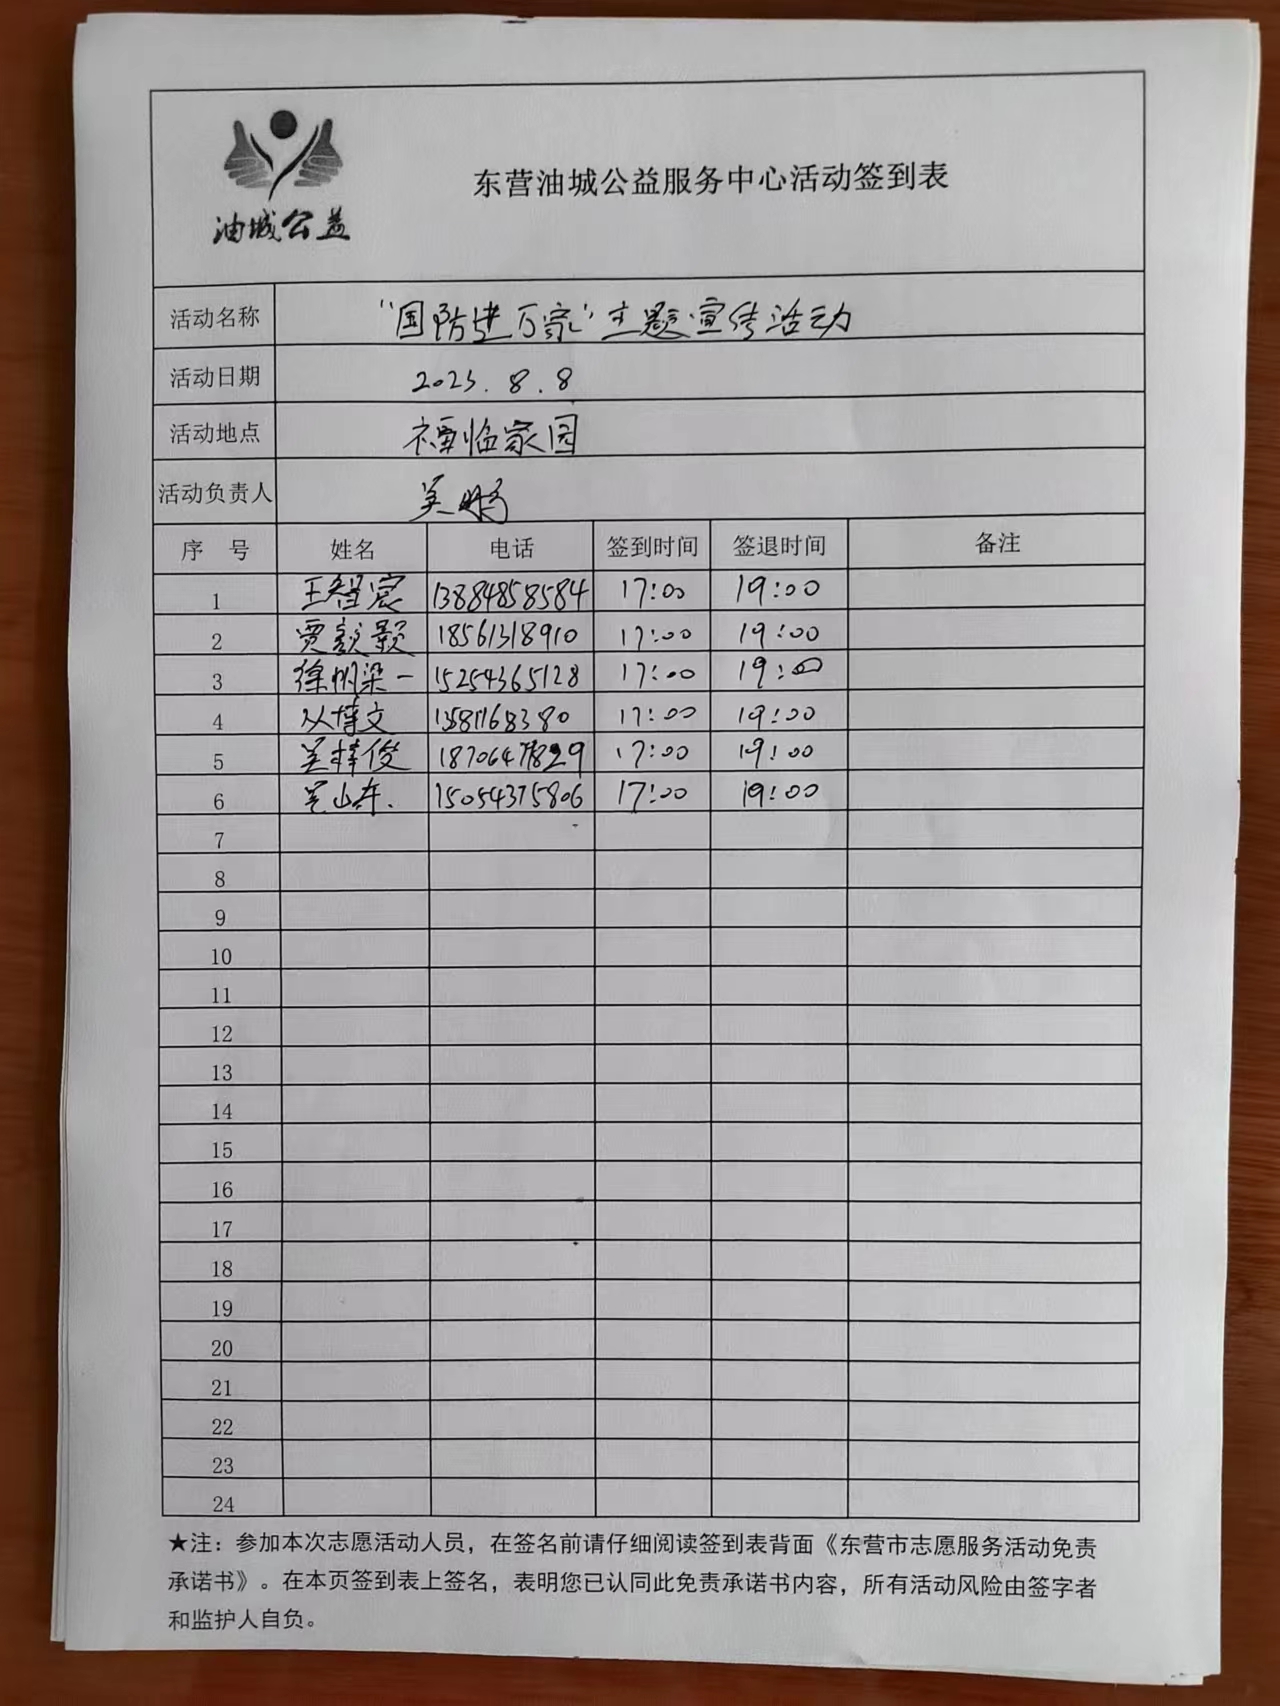 油城公益
东营油城公益服务中心活动签到表
活动名称 “国防进万家”主题宣传活动
活动日期 2023.8.8
活动地点 福临家园
活动负责人 吴鹏
序 号 姓名 电话 签到时间 签退时间 备注
1 王智宸 13884858584 17:00 19:00
2 贾 18561318910 17:00 19:00
3 徐帆梁一 15254365128 17:00 19:00
4 从博文 17:00 19:00
5 吴梓俊 17:00 19:00
6 吴 15054375806 17:00 19:00
7
8
9
10
11
12
13
14
15
16
17
18
19
20
21
22
23
24
★注：参加本次志愿活动人员，在签名前请仔细阅读签到表背面《东营市志愿服务活动免责
承诺书》。在本页签到表上签名，表明您已认同此免责承诺书内容，所有活动风险由签字者
和监护人自负。